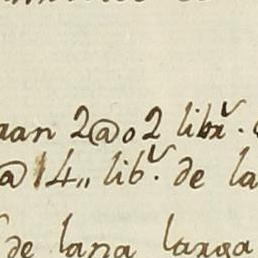 2@o2 libx.ᵛ
@14,, lib.ᵛ de la
de lana larga